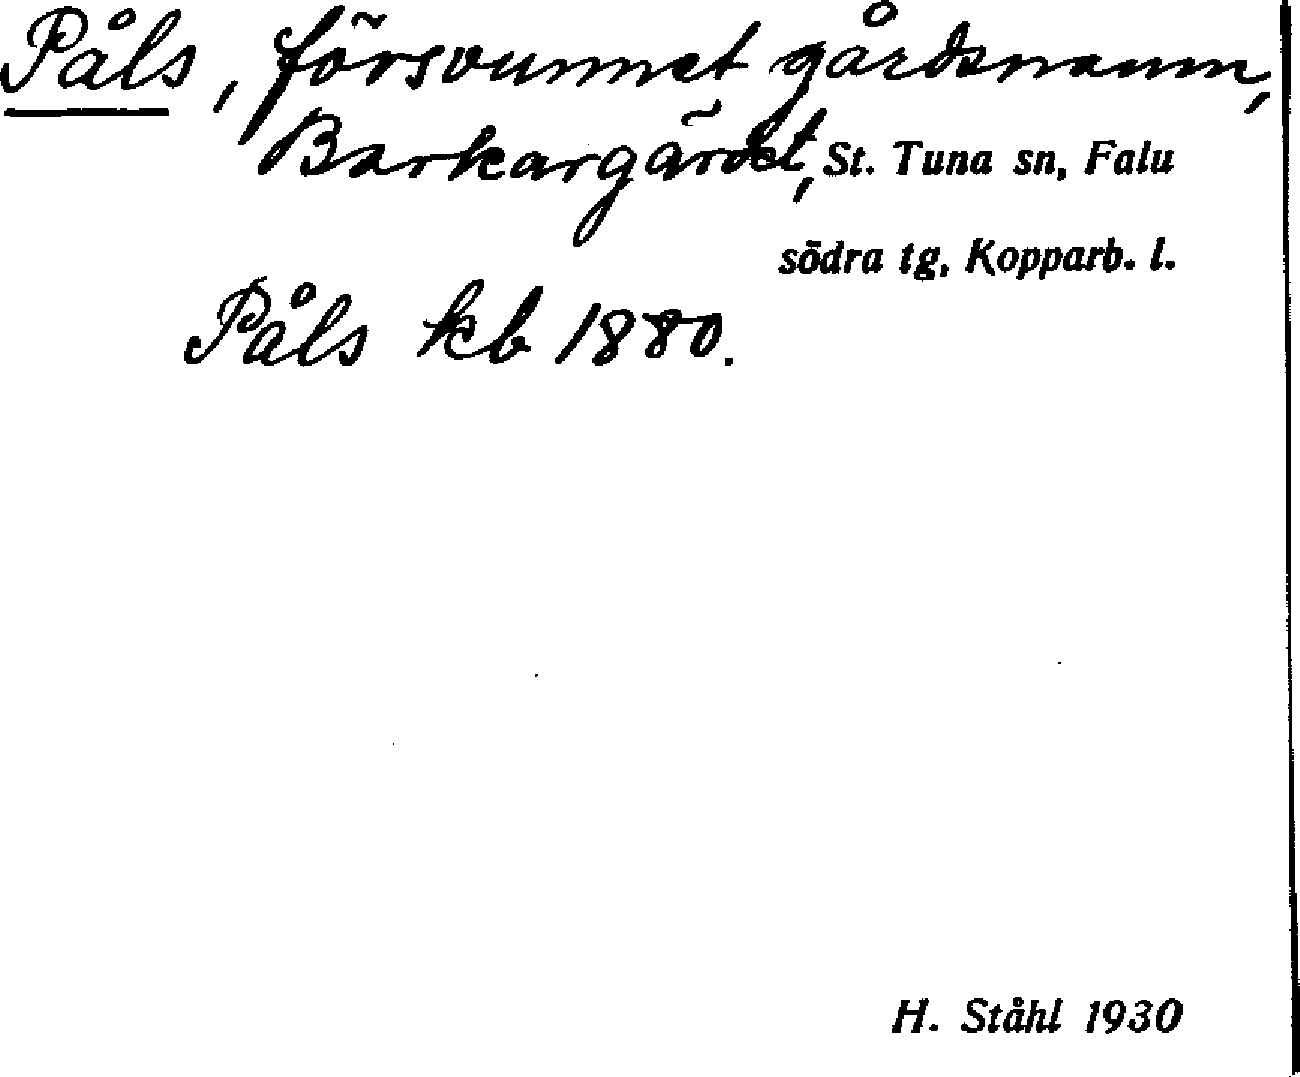 Påls, försvunnet gårdsnamn,
Barkargärdet, St. Tuna sn, Falu
södra tg, Kopparb. l.
Påls kb 1880.
H. Ståhl 1930